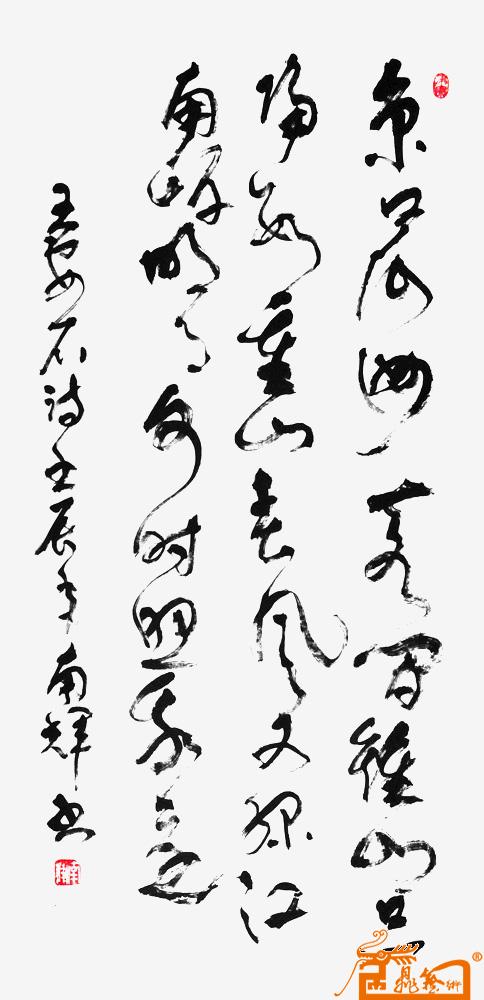 京口瓜洲一水间钟山只
隔数重山春风又绿江
南岸明月何时照我还
王安石诗壬辰年南辉书